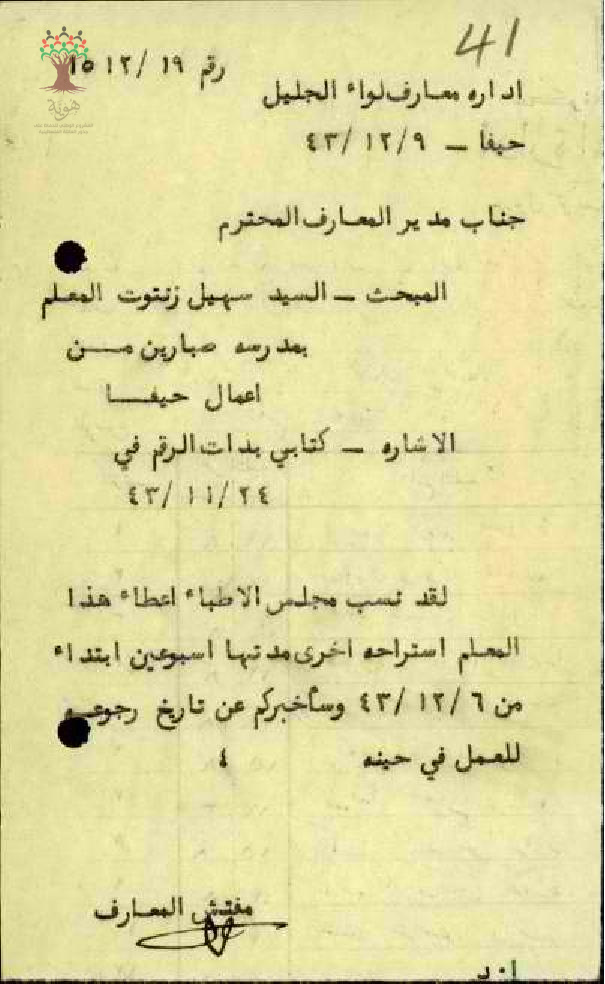 41
رقم ١٩/ ١٥١٢
اداره معارف لواء الجليل
حيفا _ ٤٣/١٢/٩
جناب مدير المعارف المحترم
المبحث _ السيد سهيل زنتوت المعلم
بمدرسه صبارين مـــن
اعمال حيفـــا
الاشاره _ كتابي بدات الرقم في
٤٣/١١/٢٤
لقد نسب مجلس الاطباء اعطاء هذا
المعلم استراحه اخرى مدتها اسبوعين ابتداء
من ٤٣/١٢/٦ وسأخبركم عن تاريخ رجوعــه
للعمل في حينه ٤
مفتش المعارف
هوية